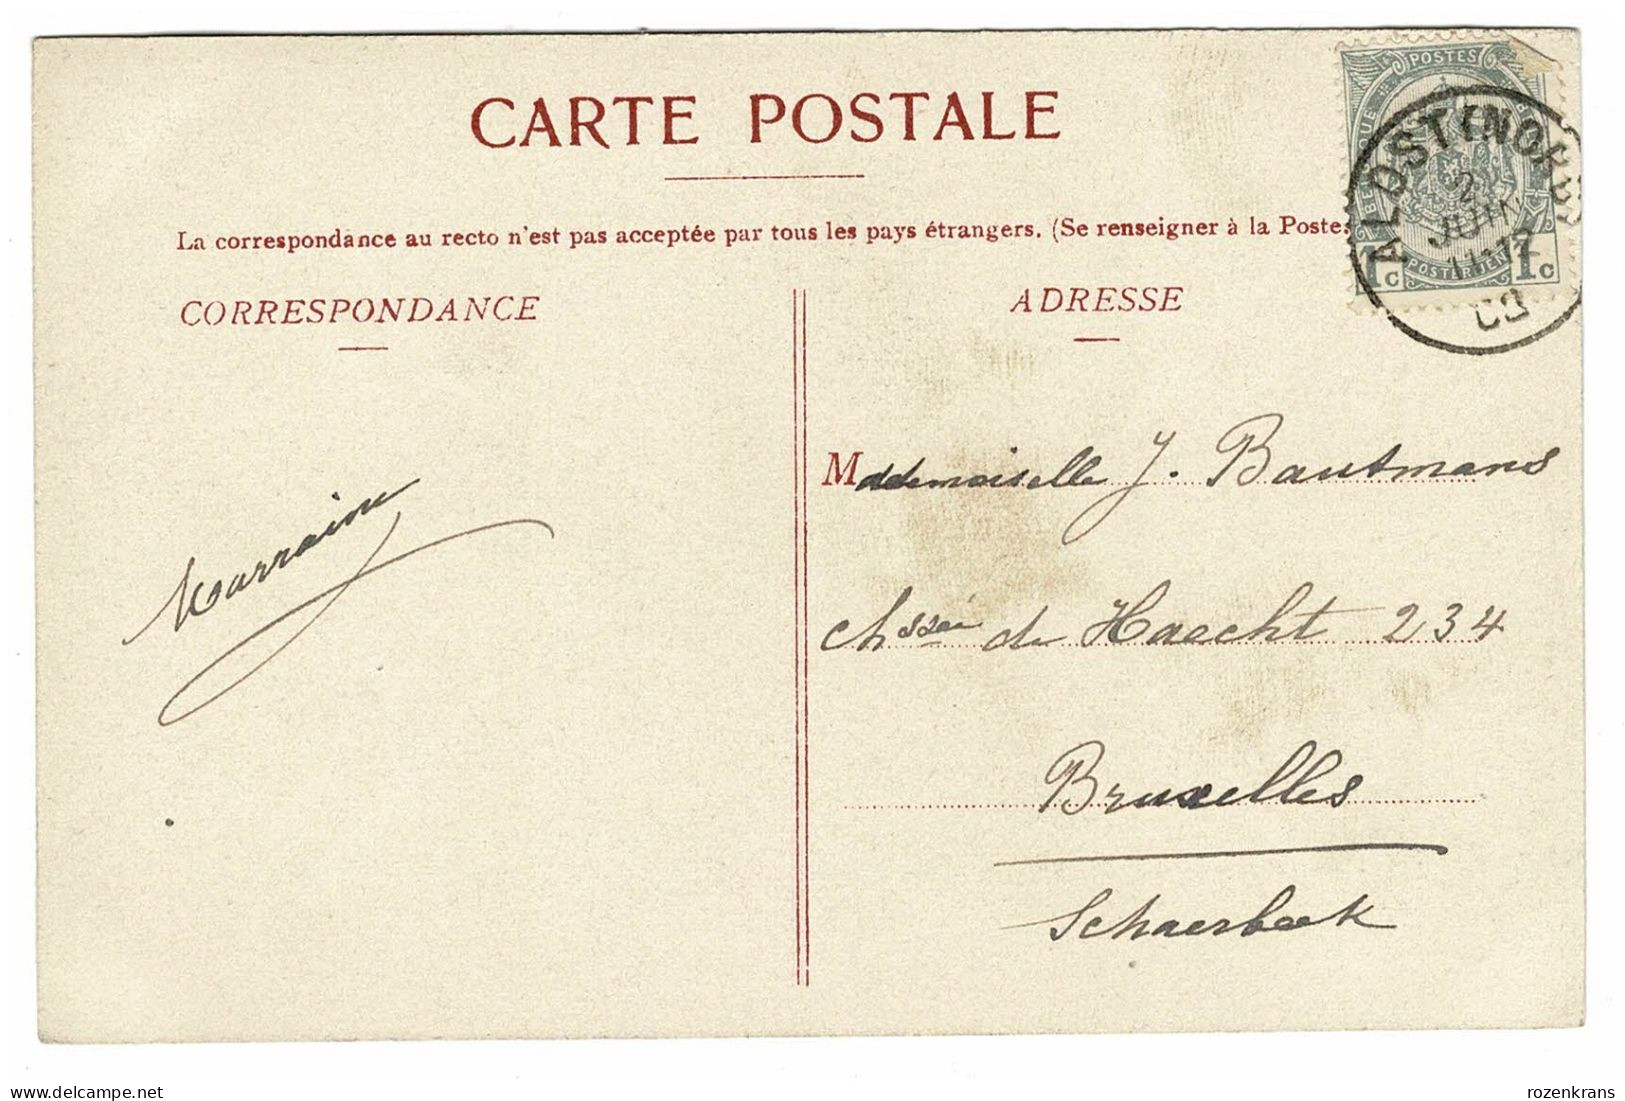 CARTE POSTALE
La correspondance au recto n'est pas acceptée par tous les pays étrangers. (Se renseigner à la Poste
CORRESPONDANCE
ADRESSE
POSTES
BELGIQUE
POSTERIJEN
1c 1c
ALOST (NORD)
2
JUIN
Marraine
Mademoiselle J. Bautmans
Chssée de Haecht 234
Bruxelles
Schaerbeek
rozenkrans